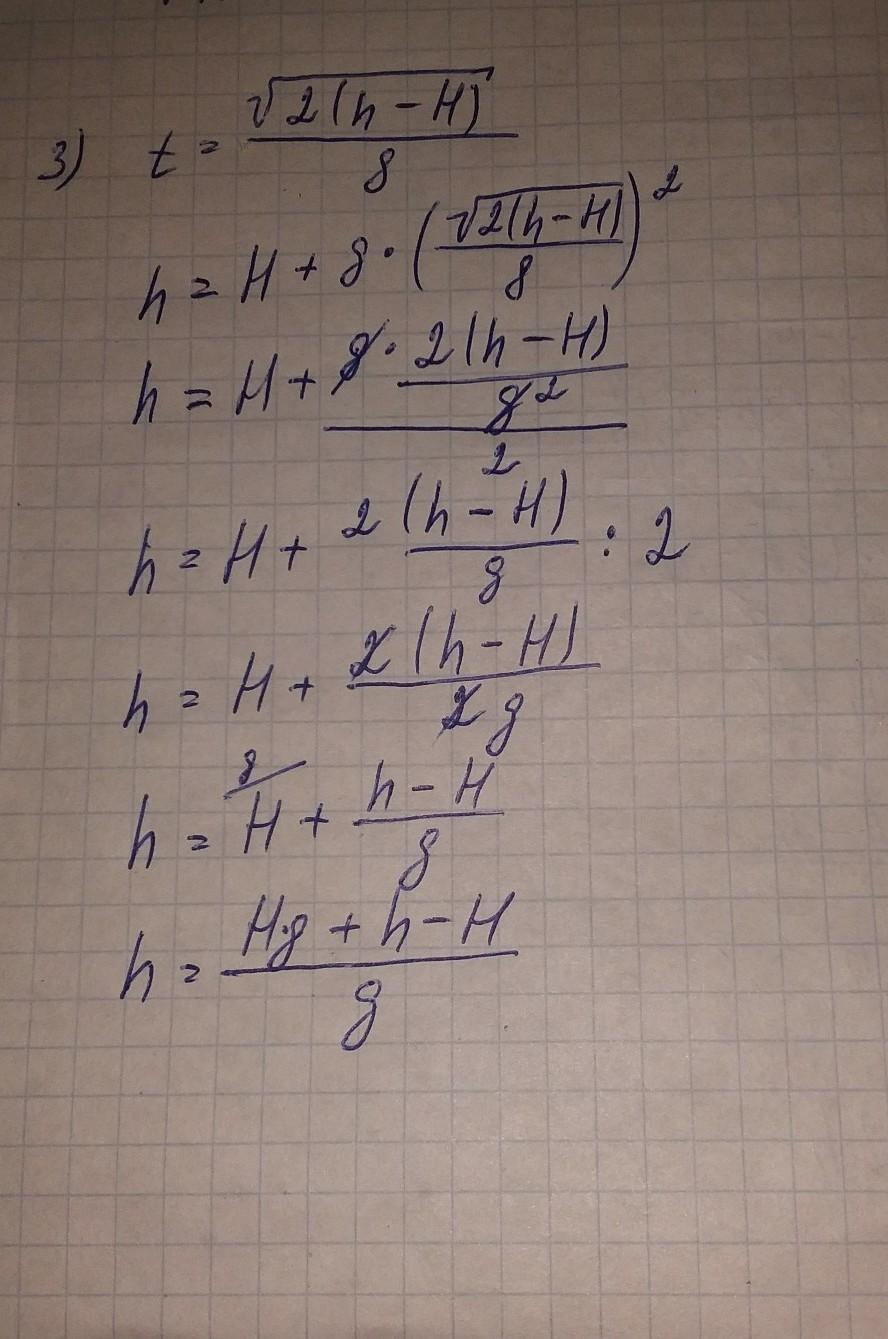 3) t = √2(h − H) / g
h = H + g · (√2(h − H) / g)²
h = H + g · 2(h − H) / g² / 2
h = H + 2(h − H) / g : 2
h = H + 2(h − H) / 2g
h = H g/ + h − H / g
h = H·g + h − H / g